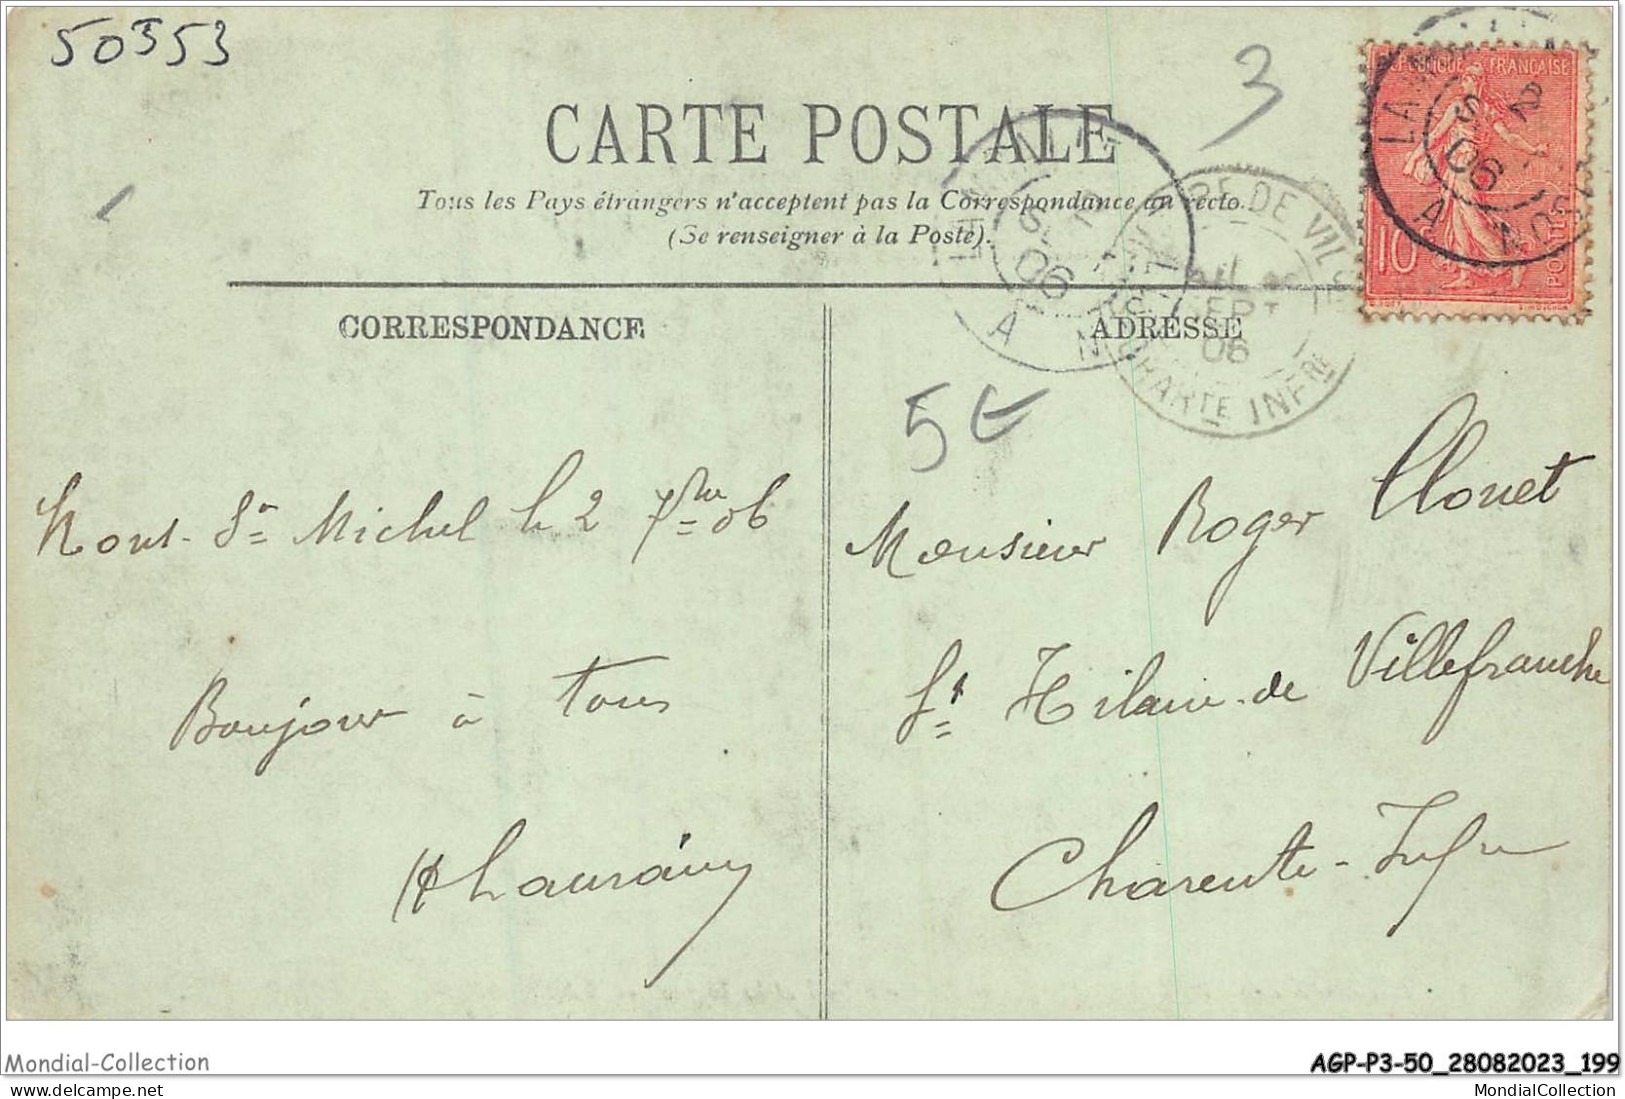 50353
3
CARTE POSTALE
Tous les Pays étrangers n'acceptent pas la Correspondance au recto.
(Se renseigner à la Poste).
REPUBLIQUE FRANÇAISE
10c
POSTES
2
06
LA
A
06
A
RE DE VIL
SEPT
06
CHARTE INFRE
CORRESPONDANCE
ADRESSE
5€
Mont-St= Michel le 2 7bre 06
Bonjour à tous
Monsieur Roger Clouet
St Hilaire-de Villefranche
Charente-Infre
Mondial-Collection
AGP-P3-50_28082023_199
delcampe.net
MondialCollection